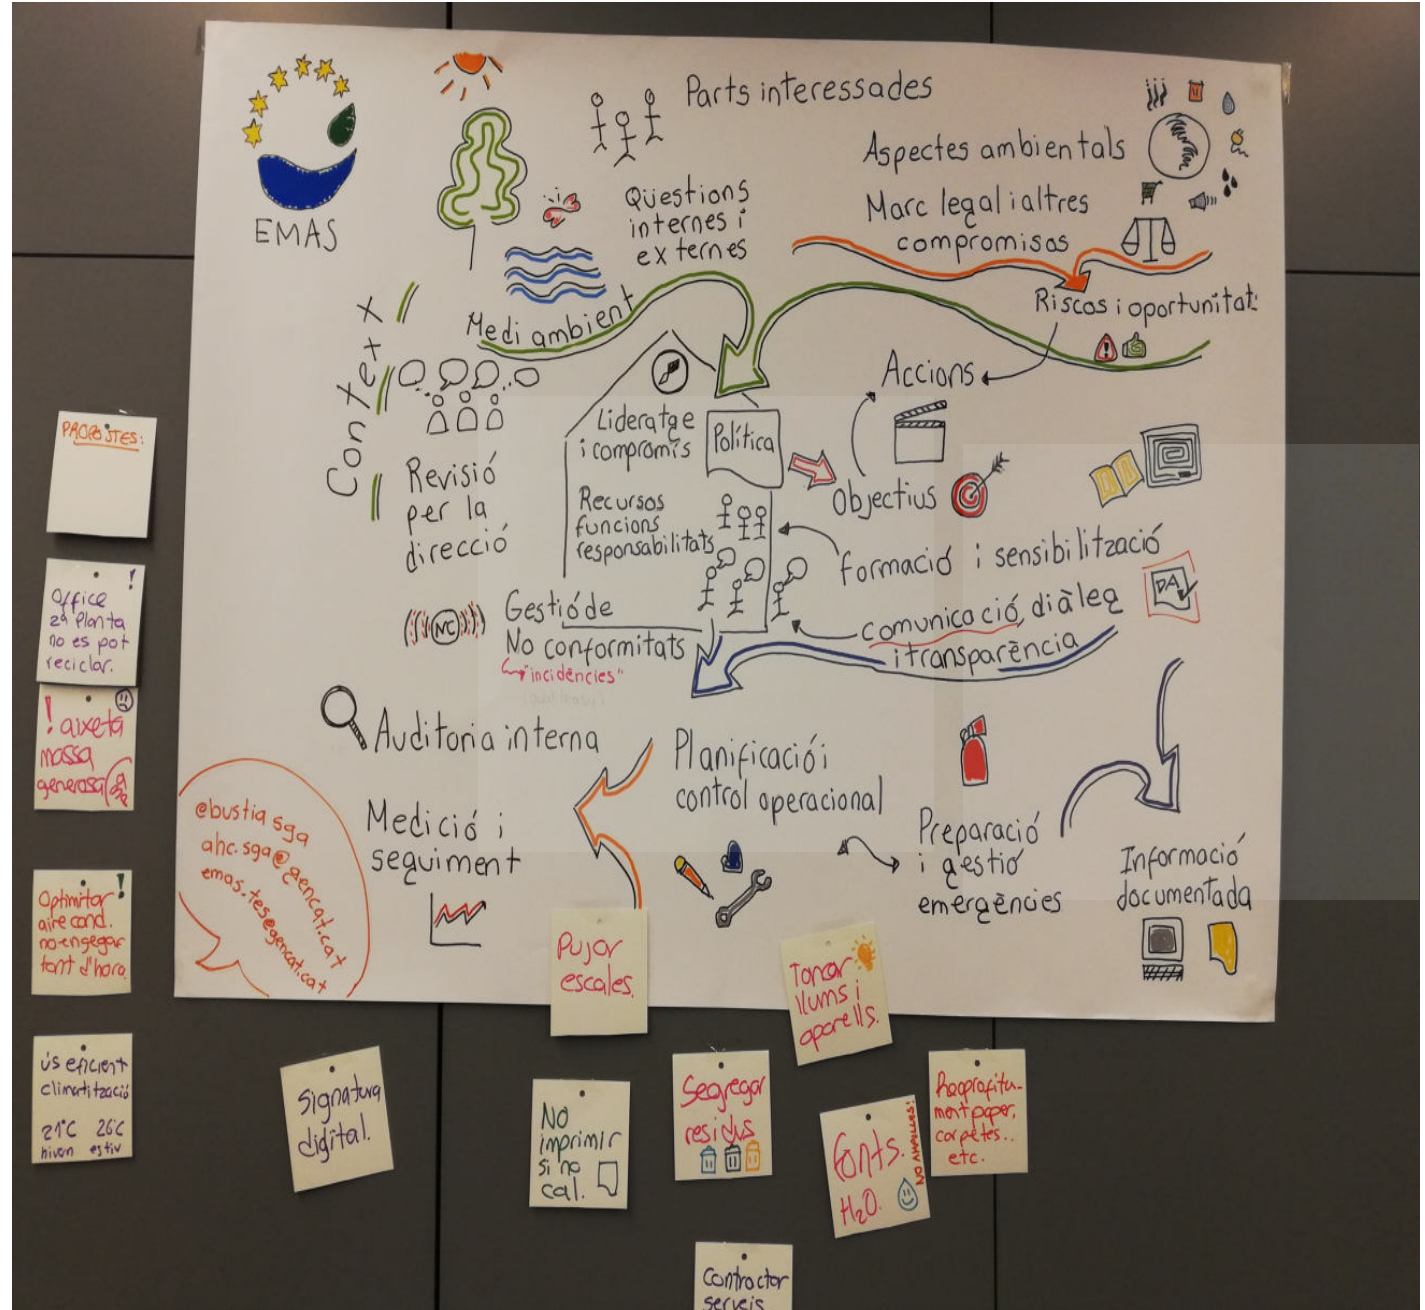 EMAS
Parts interessades
Aspectes ambientals
Qüestions
internes i
externes
Marc legal i altres
compromisos
Riscos i oportunitat
Medi ambient
Context
Accions
Lideratge
i compromís
Política
Objectius
Revisió
per la
direcció
Recursos
funcions
responsabilitats
formació i sensibilització
comunicació, diàleg
i transparència
DA
NC
Gestió de
No conformitats
"incidències"
Auditoria interna
Planificació i
control operacional
Medició i
seguiment
Preparació
i gestió
emergències
Informació
documentada
@bustia sga
ahc.sga@gencat.cat
PROPOSTES:
Office !
2ª Planta
no es pot
reciclar.
! aixeta
massa
generosa
Optimitzar !
aire cond.
no engegar
tant d'hora
ús eficient
climatització
21°C 26°C
hivern estiu
signatura
digital.
Pujar
escales.
No
imprimir
si no
cal.
Segregar
residus
Tancar
llums i
aparells.
Fonts.
H₂O.
Reaprofita-
ment paper,
carpetes..
etc.
Contractar
serveis